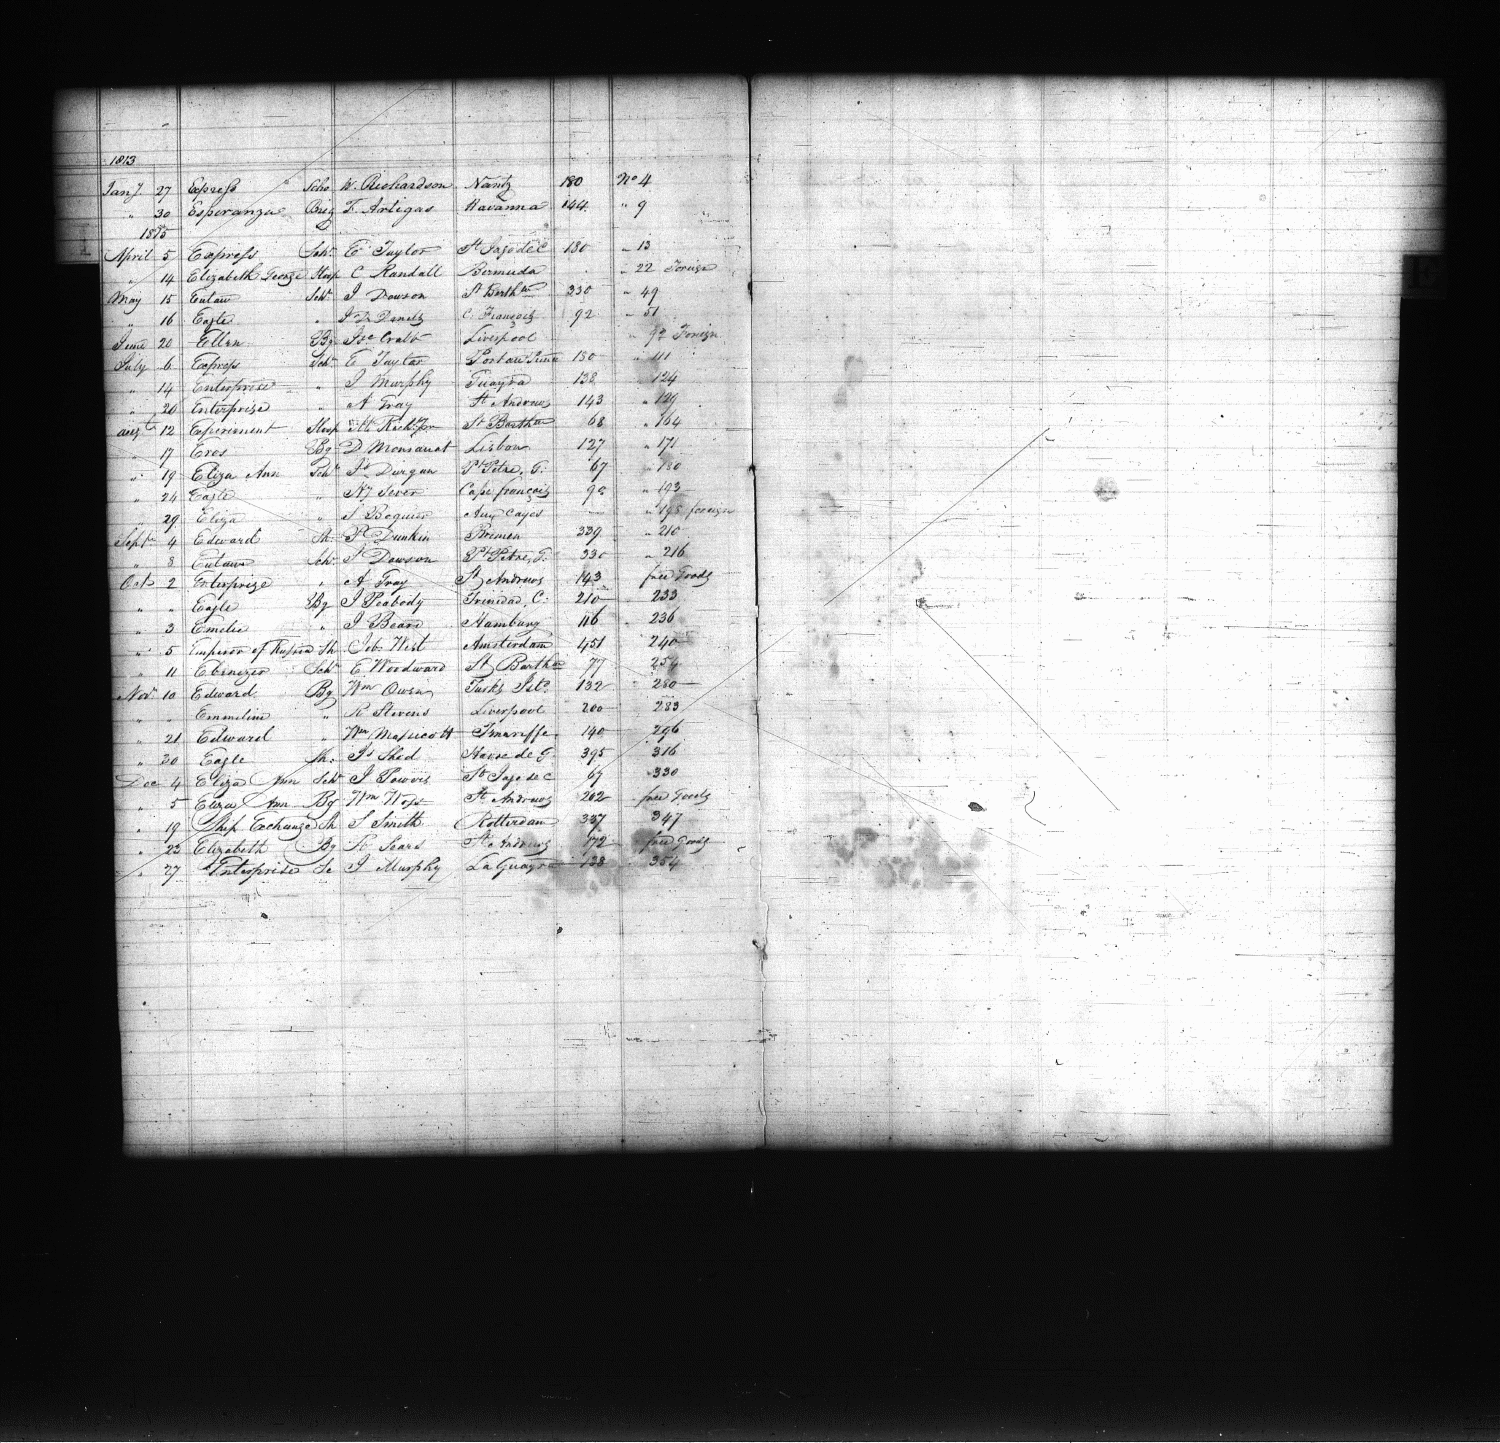 1813
Jany. 27 Express Scho W. Richardson Nantz 180 No 4
" 30 Esperanza Brig F. Artegas Havanna 144 " 9
1815
April 5 Express Schr E Taylor St Jago de C 180 " 13
" 14 Elizabeth George Sloop C Randall Bermuda " 22 Foreign
May 15 Eutaw Schr J Dawson St Barthws 330 " 49
" 16 Eagle " C. François 92 " 51
June 20 Ellen Bg Jno Crabb Liverpool " 92 Foreign
July 6 Express Schr E Taylor Port au Prince 180 " 111
" 14 Enterprise " J Murphy Guayra 138 " 124
" 20 Enterprize " A Gray St Andrews 143 " 129
Aug 12 Experiment Sloop St Barthw 68 " 164
" 17 Eros Bg D Monsarrat Lisbon 127 " 171
" 19 Eliza Ann Schr Js Durgan Pt Petre, G. 67 " 180
" 24 Eagle " Hy Sever Cape François 92 " 193
" 29 Eliza " J Beguir Aux Cayes — " 198 foreign
Septr 4 Edward Sh. P Dunkin Bremen 339 " 210
" 8 Eutaw Schr J Dawson Pt Petre, G. 330 " 216
Oct 2 Enterprize " A Gray St Andrews 143 free Goods
" " Eagle Bg J Peabody Trinidad, C. 210 233
" 3 Emelie " J Beard Hamburg 116 236
" 5 Emperor of Russia Sh Job West Amsterdam 451 240
" 11 Ebenezer Schr E Woodward St Barthw 77 254
Novr 10 Edward Bg Wm Owen Turks Isld. 132 " 280
" " Emmeline " R Stevens Liverpool 200 283
" 21 Edward " Wm Masicott Teneriffe 140 296
" 30 Eagle Sh. Js Shed Havre de G. 395 316
Dec 4 Eliza Ann Schr J Powers St Jago de C 67 330
" 5 Eliza Ann Bg Wm West St Andrews 202 free Goods
" 19 Ship Exchange Sh S Smith Rotterdam 337 347
" 23 Elizabeth Bg R Sears St Andrews 172 free Goods
" 27 Enterprise Sc J Murphy La Guayra 138 354
E